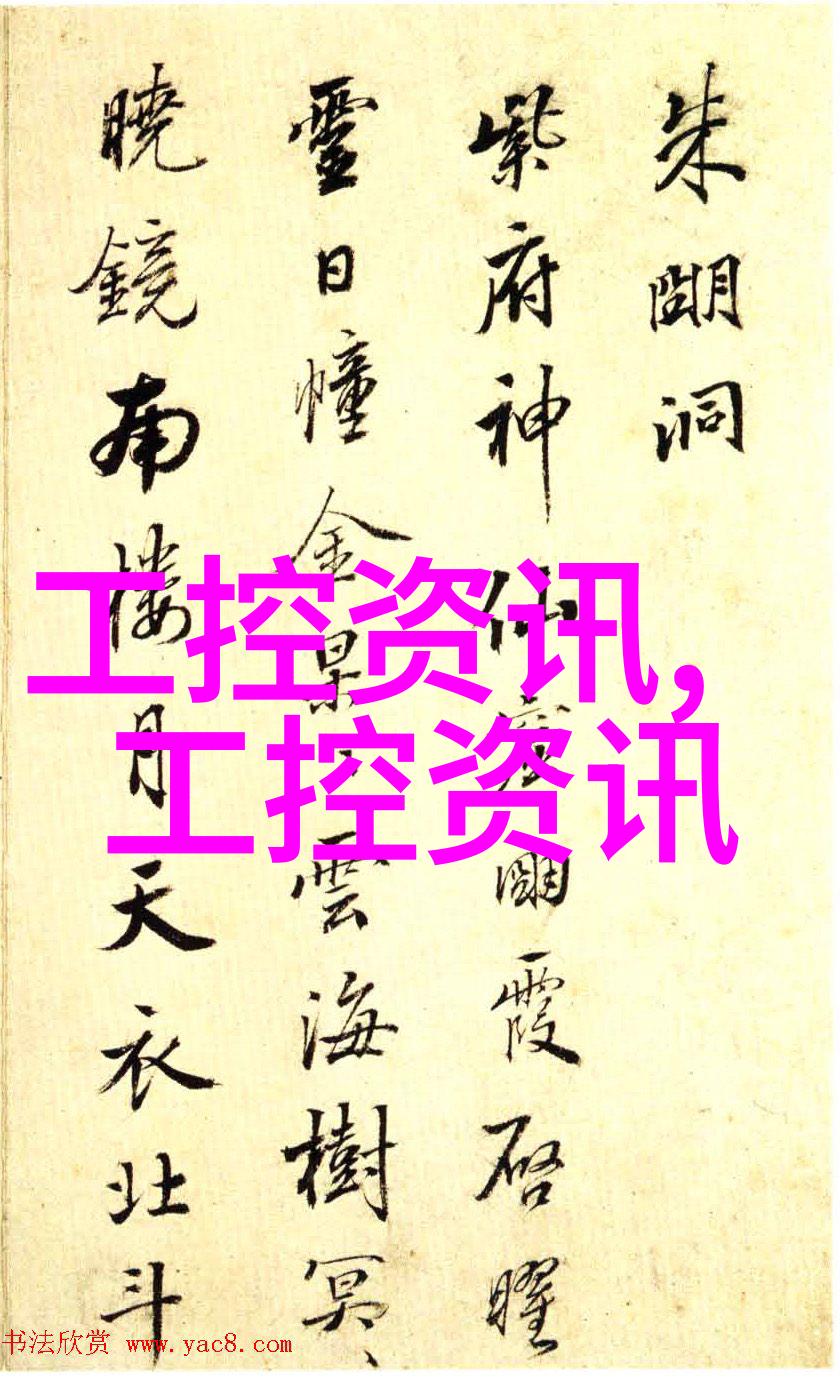 朱朙洞
紫府神仙宅朙霞启曜
靈日幢金杲々雲海樹冥々
曉鏡南樓月天衣北斗
工控资讯,
工控资讯
书法欣赏 www.yac8.com